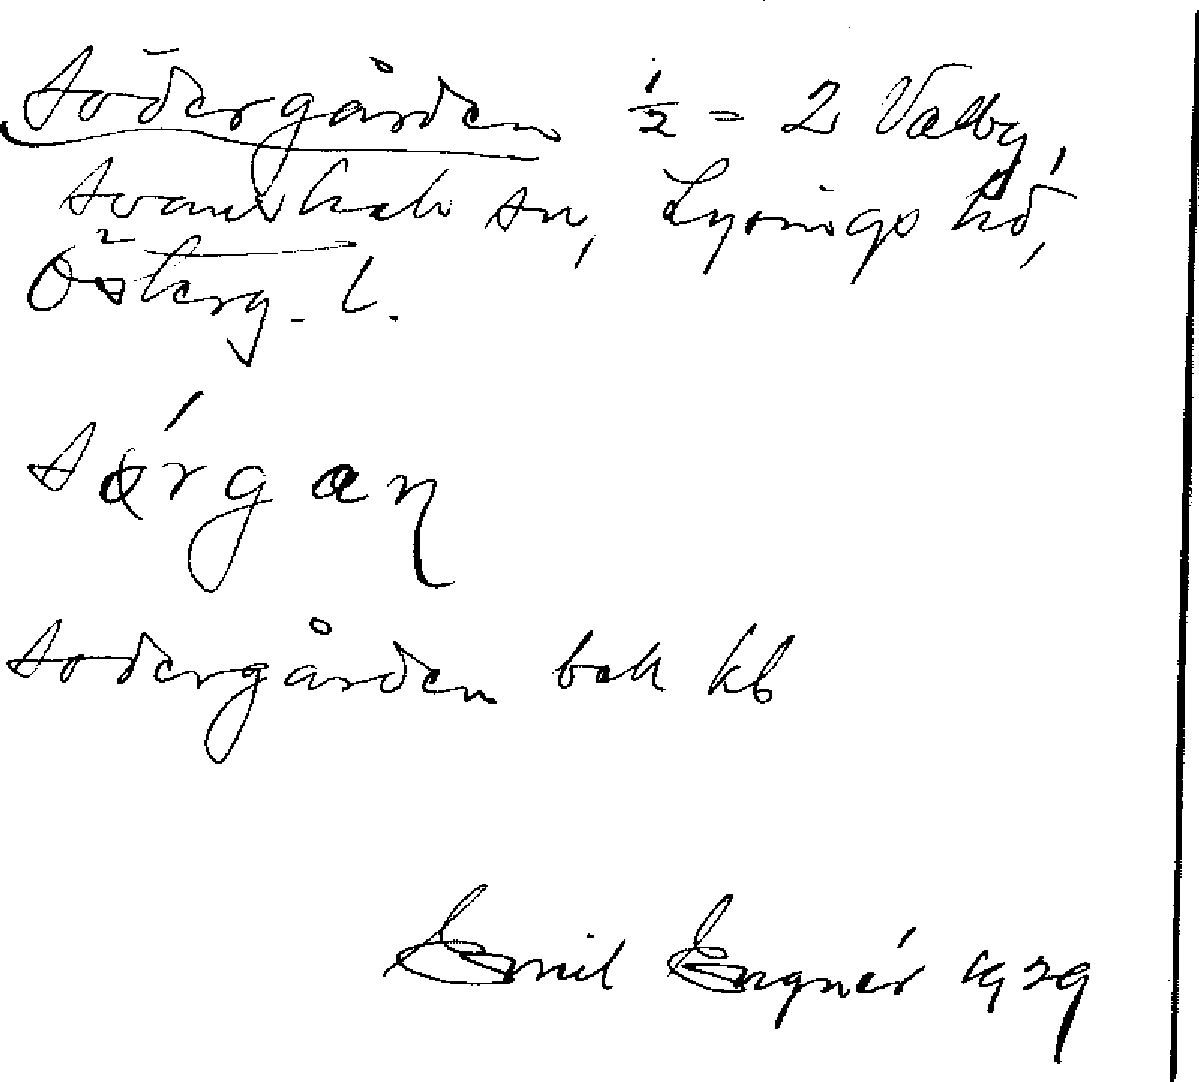 Södergården 1/2 = 2 Valby,
Svanshals sn, Lysings hd,
Österg. l.
sǿrgan
Södergården bok kb
Emil Engnér 1929